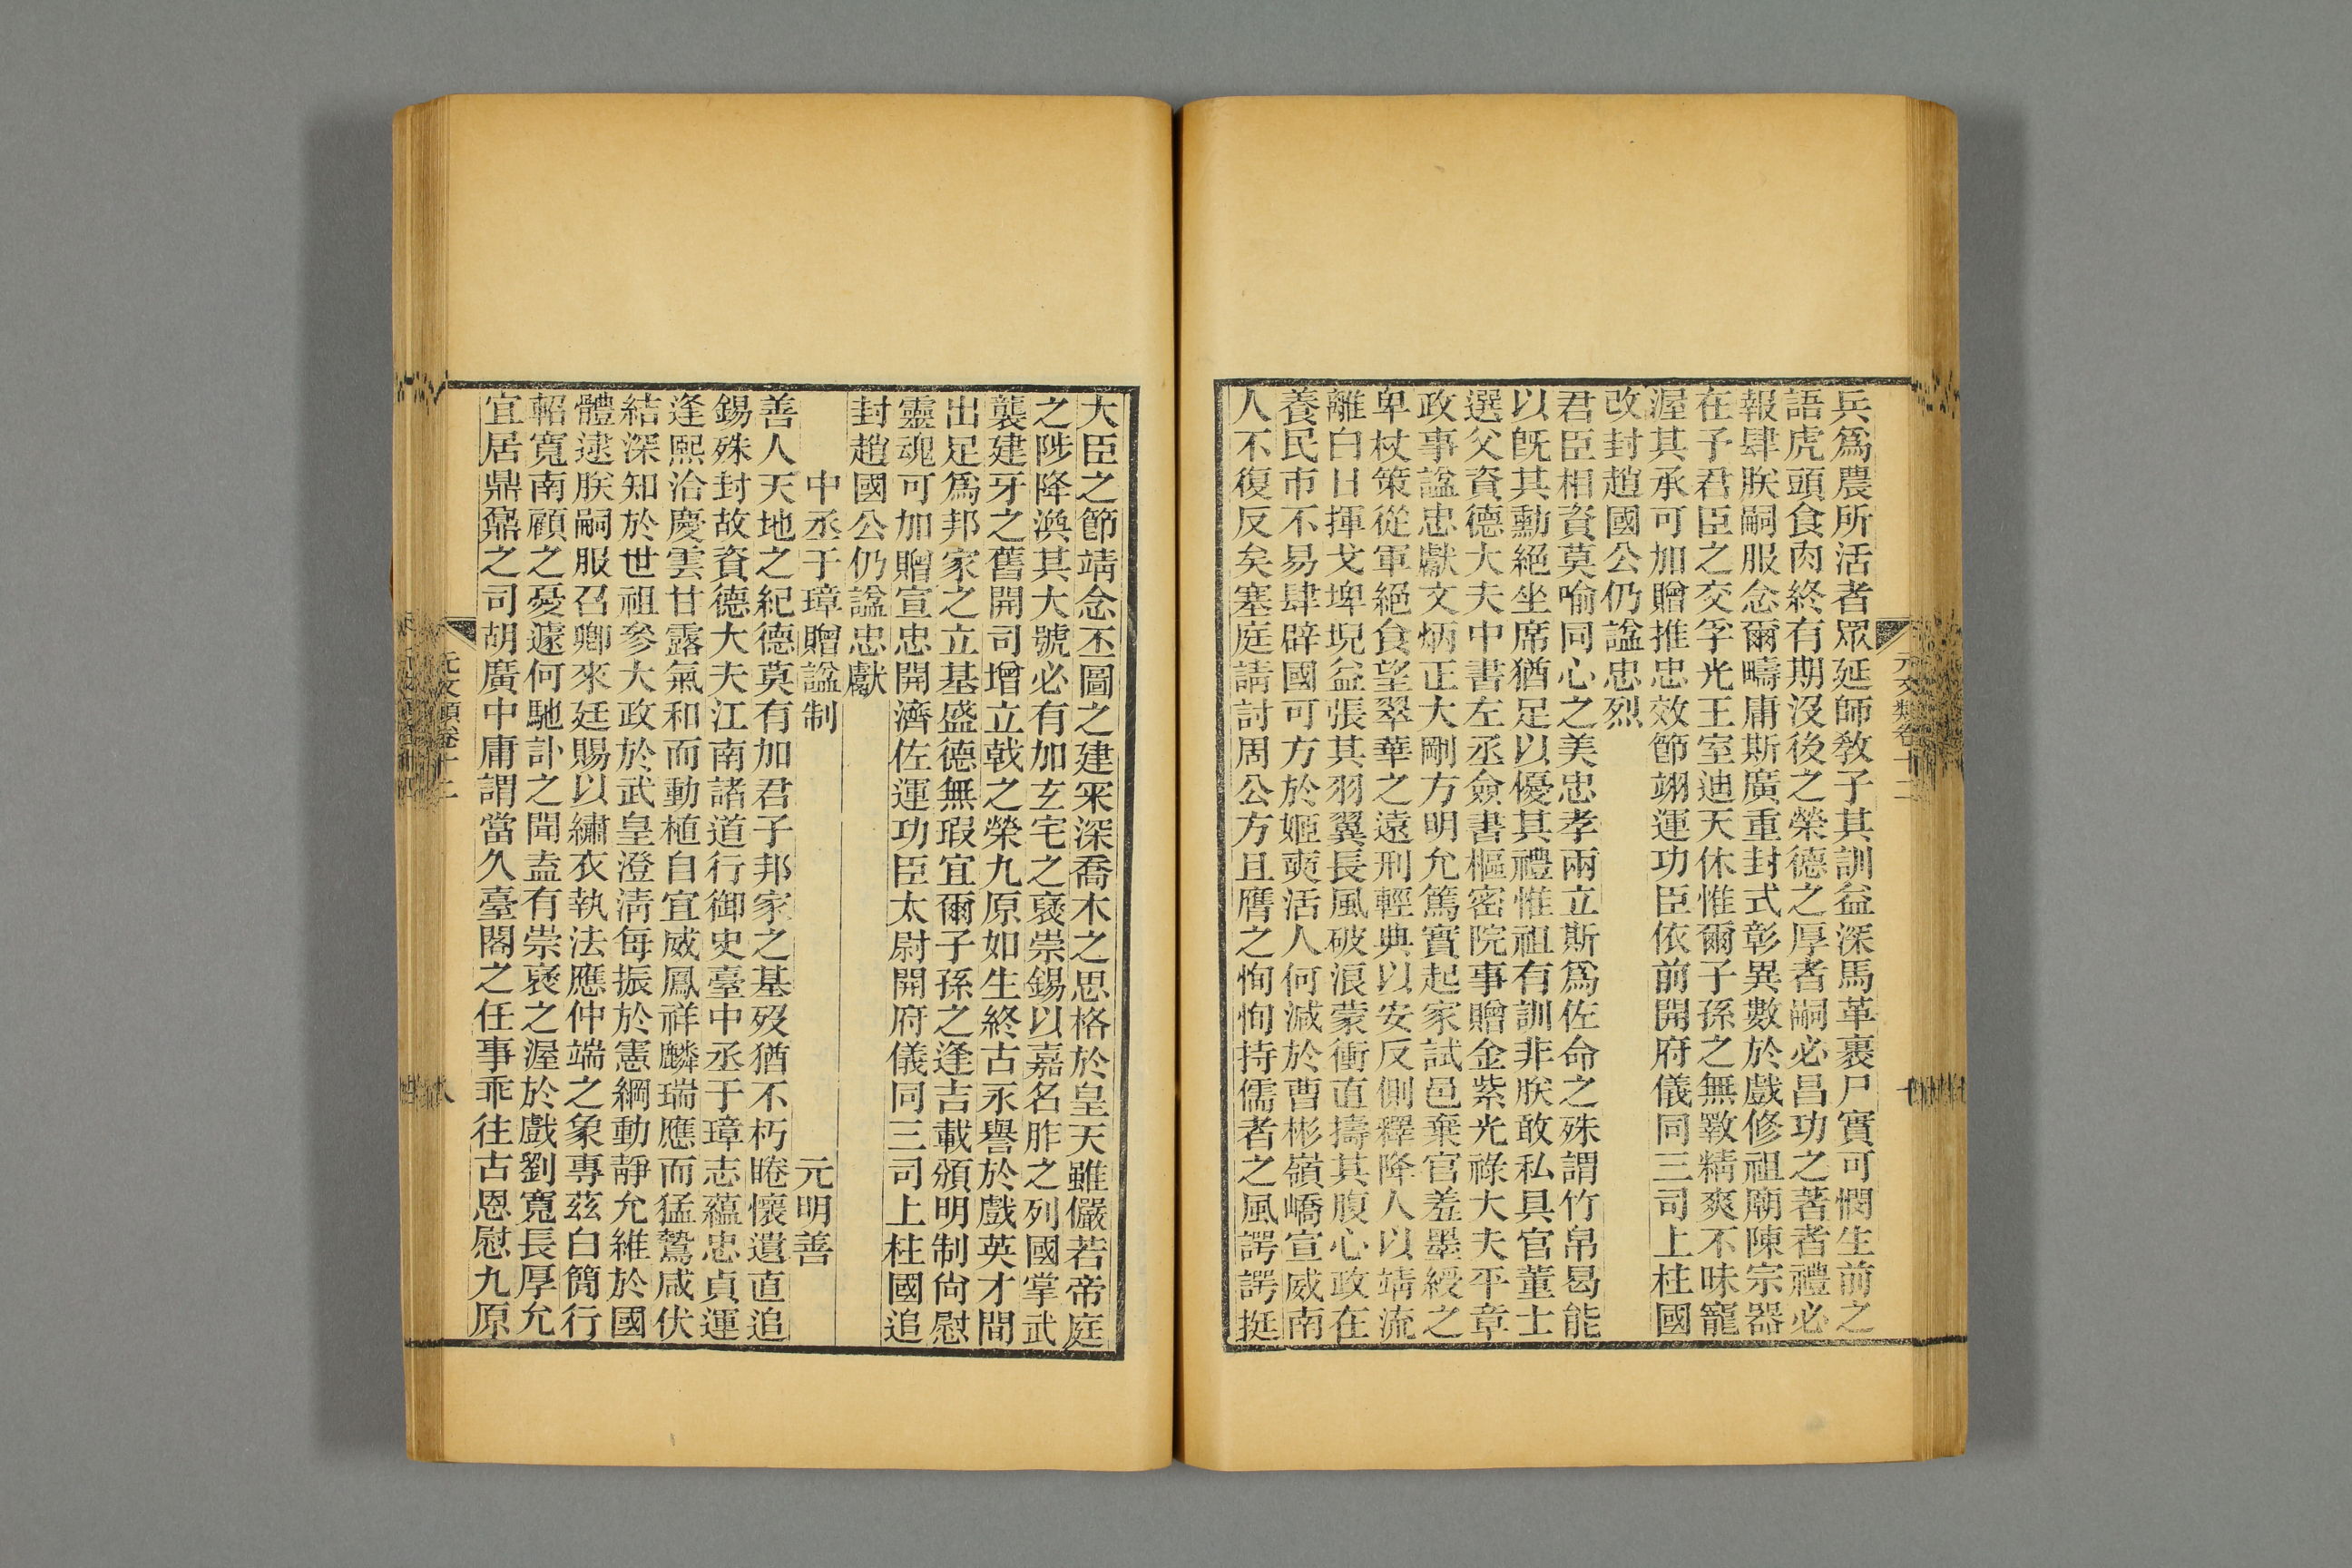 元文類卷十二
兵爲農所活者眾延師敎子其訓益深馬革裹尸實可憫生前之
語虎頭食肉終有期沒後之榮德之厚者嗣必昌功之著者禮必
報肆朕嗣服念爾疇庸斯廣重封式彰異數於戲修祖廟陳宗器
在予君臣之交孚光王室迪天休惟爾子孫之無斁精爽不昧寵
渥其承可加贈推忠效節翊運功臣依前開府儀同三司上柱國
改封趙國公仍諡忠烈
君臣相資莫喻同心之美忠孝兩立斯爲佐命之殊謂竹帛曷能
以旣其勳絕坐席猶足以優其禮惟祖有訓非朕敢私具官董士
選父資德大夫中書左丞僉書樞密院事贈金紫光祿大夫平章
政事諡忠獻文炳正大剛方明允篤實起家試邑棄官羞墨綬之
卑杖策從軍絕食望翠華之遠刑輕典以安反側釋降人以靖流
離白日揮戈埤堄益張其羽翼長風破浪蒙衝直擣其腹心政在
養民市不易肆辟國可方於姬奭活人何減於曹彬嶺嶠宣威南
人不復反矣塞庭請討周公方且膺之恂恂持儒者之風諤諤挺
大臣之節靖念丕圖之建宷深喬木之思格於皇天雖儼若帝庭
之陟降渙其大號必有加玄宅之褒崇錫以嘉名胙之列國掌武
襲建牙之舊開司增立戟之榮九原如生終古永譽於戲英才間
出足爲邦家之立基盛德無瑕宜爾子孫之逢吉載頒明制尙慰
靈魂可加贈宣忠開濟佐運功臣太尉開府儀同三司上柱國追
封趙國公仍諡忠獻
中丞于璋贈諡制 元明善
善人天地之紀德莫有加君子邦家之基歿猶不朽睠懷遺直追
錫殊封故資德大夫江南諸道行御史臺中丞于璋志蘊忠貞運
逢熙洽慶雲甘露氣和而動植自宜威鳳祥麟瑞應而猛鷙咸伏
結深知於世祖參大政於武皇澄淸每振於憲綱動靜允維於國
體逮朕嗣服召卿來廷賜以繡衣執法應仲端之象專茲白簡行
軺寬南顧之憂遽何馳訃之聞盍有崇褒之渥於戲劉寬長厚允
宜居鼎鼐之司胡廣中庸謂當久臺閣之任事乖往古恩慰九原
元文類卷十二
八